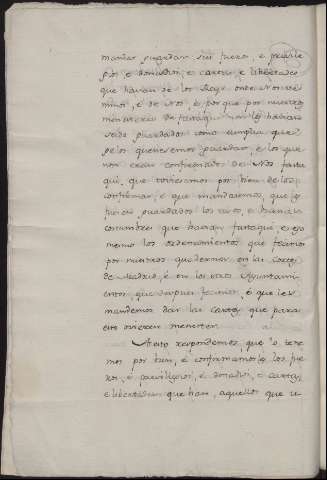 mandar guardar sus fueros, e previle
gios, e donadios, e cartas, e libertades
que havian de los Reyes onde Nos veni
mos, é de Nos, é por que por nuestros
menesteres fastaqui non les habian
seido guardados como cumplia que
gelos quiesemos guardar, e los que
non eran confirmados de Nos fasta
qui, que toviesemos por bien de los
confirmar, é que mandasemos, que les
fuesen guardados los usos, e buenas
costumbres que habian fastaqui, e eso
mesmo los ordenamientos que fecimos
por nuestros quadernos, en las Cortes
de Madrid, é en los otros Ayuntami-
entos, que despues fecimos, é que les
mandemos dar las cartas que para
esto ovieren menester.
A esto respondemos, que lo tene
mos por bien, é confirmamosles los fue
ros, é previllegios, é donadios, e cartas
e libertades que han, aquellos que se